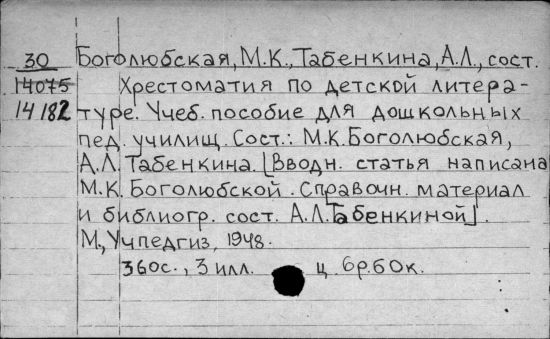 30 Боголюбская, М.К., Табенкина, А.Л., сост.
14075 Хрестоматия по детской литера-
14182 туре. Учеб. пособие для дошкольных
пед. училищ. Сост.: М.К. Боголюбская,
А.Л. Табенкина. [Вводн. статья написана
М.К. Боголюбской. Справочн. материал
и библиогр. сост. А.Л. Табенкиной].
М., Учпедгиз, 1948.
360с., 3 илл. ц. 6р.60к.